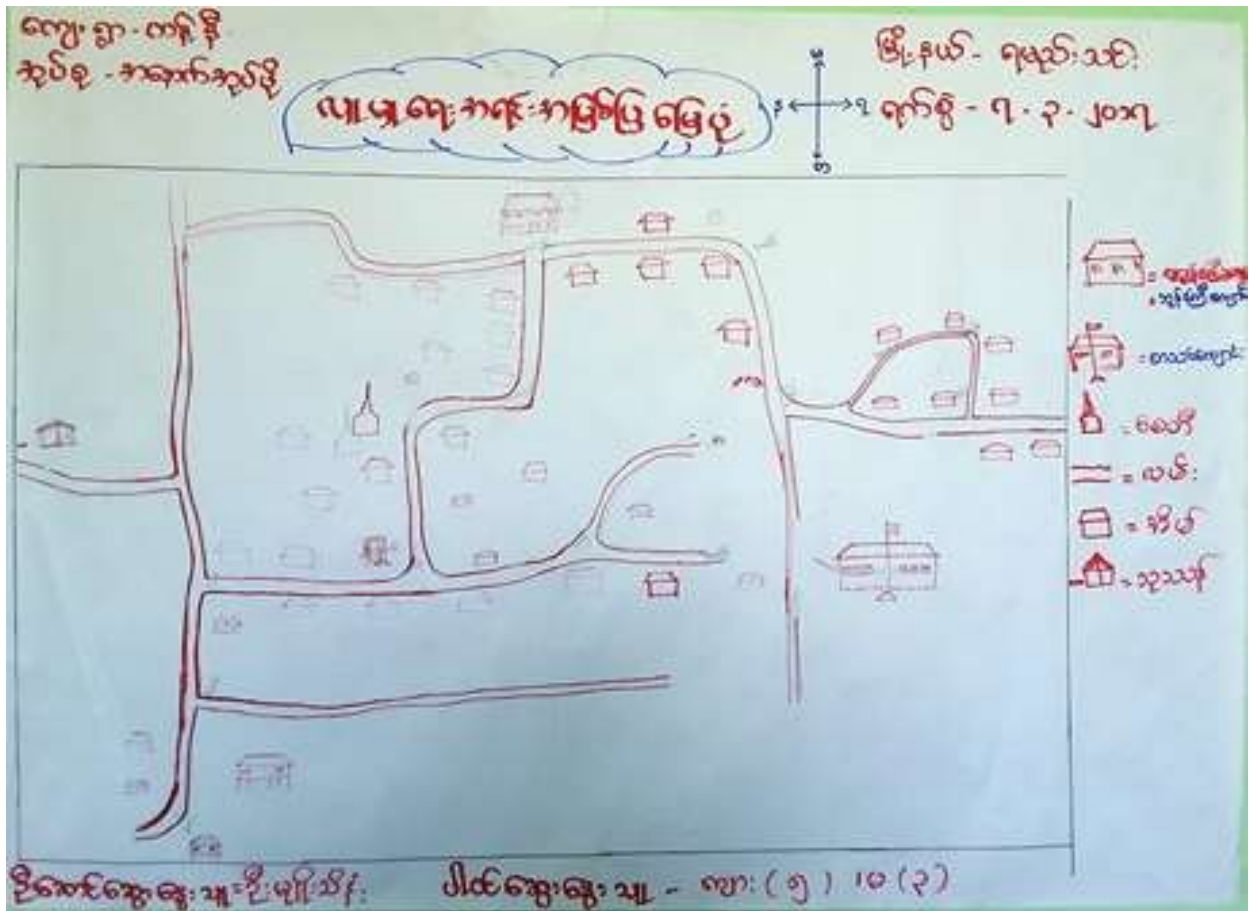 ကျေးရွာ - ကန်နီ
အုပ်စု - အနောက်အုပ်ဖို
လူမှုရေးအရင်းအမြစ်ပြမြေပုံ
မြို့နယ် - ရမည်းသင်း
ရက်စွဲ - ၇.၃.၂၀၁၇
ဘုန်းကြီးကျောင်း
= စာသင်ကျောင်း
= စေတီ
= လမ်း
= အိမ်
= သုသာန်
ဦးဆောင်ဆွေးနွေးသူ = ဦးမျိုးသိန်း
ပါဝင်ဆွေးနွေးသူ - ကျား (၅) ၊ မ (၃)